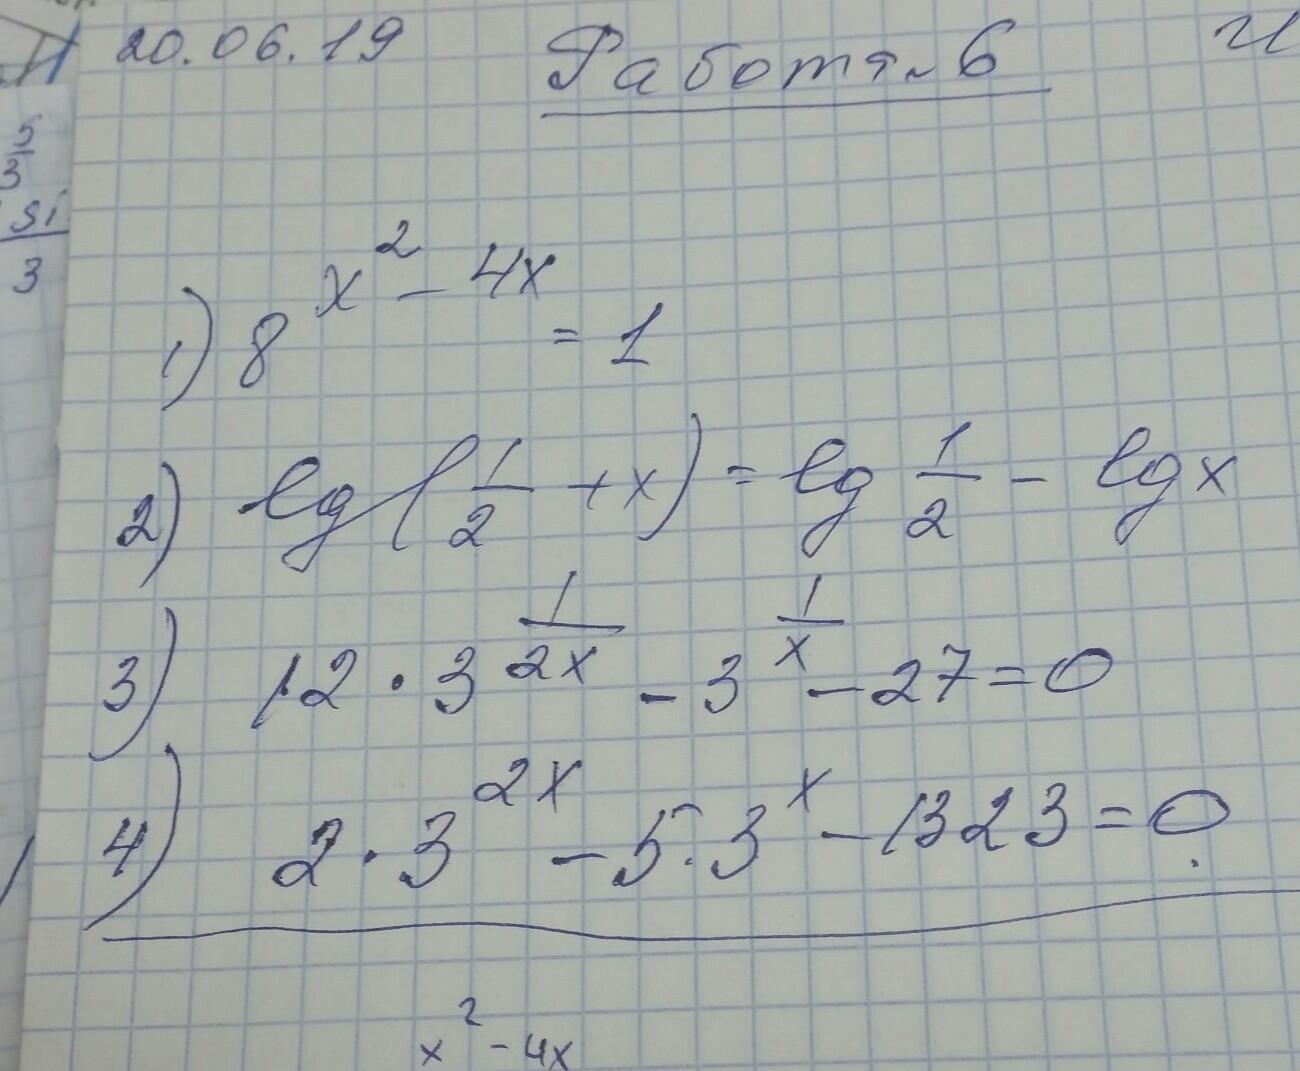 20.06.19 Работа 6
5
3
si
3
1) 8^{x^2 - 4x} = 1
2) lg(1/2 + x) = lg 1/2 - lg x
3) 12 · 3^{1/2x} - 3^{1/x} - 27 = 0
4) 2 · 3^{2x} - 5 · 3^x - 1323 = 0.
x^2 - 4x